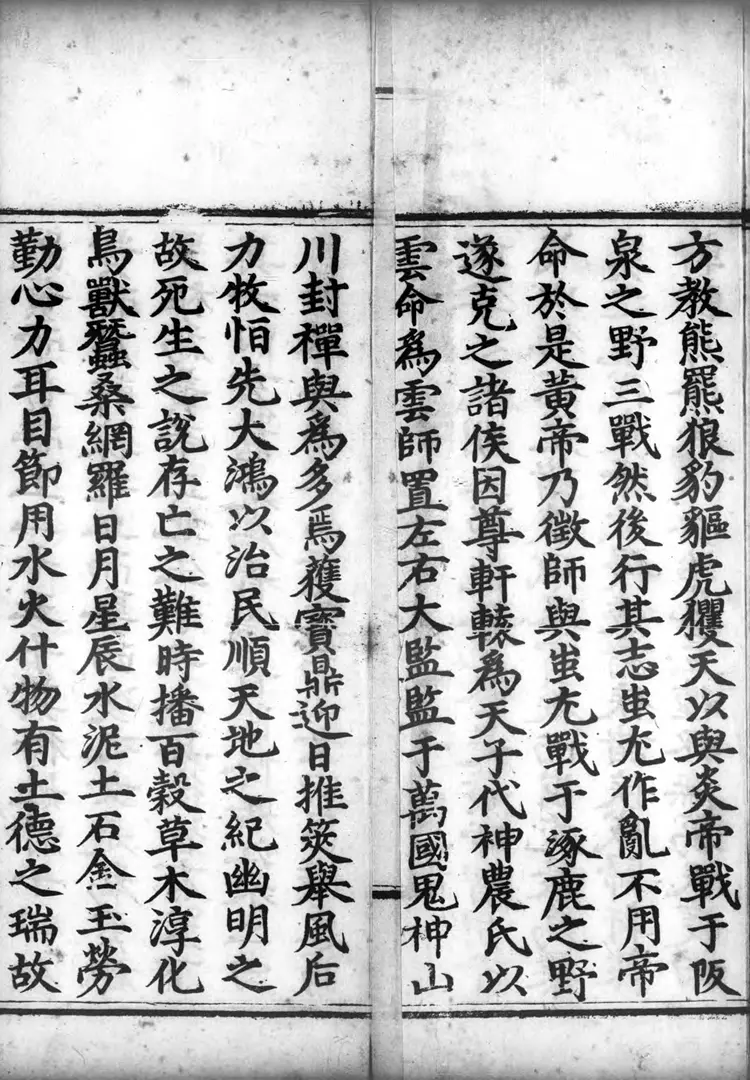 方教熊羆狼豹貙虎玃天以與炎帝戰于阪
泉之野三戰然後行其志蚩尤作亂不用帝
命於是黃帝乃徵師與蚩尤戰于涿鹿之野
遂克之諸侯因尊軒轅為天子代神農氏以
雲命為雲師置左右大監監于萬國鬼神山
川封禪與為多焉獲寶鼎迎日推筴舉風后
力牧怕先大鴻以治民順天地之紀幽明之
故死生之說存亡之難時播百穀草木淳化
鳥獸蠶桑網羅日月星辰水泥土石金玉勞
勤心力耳目節用水火什物有土德之瑞故